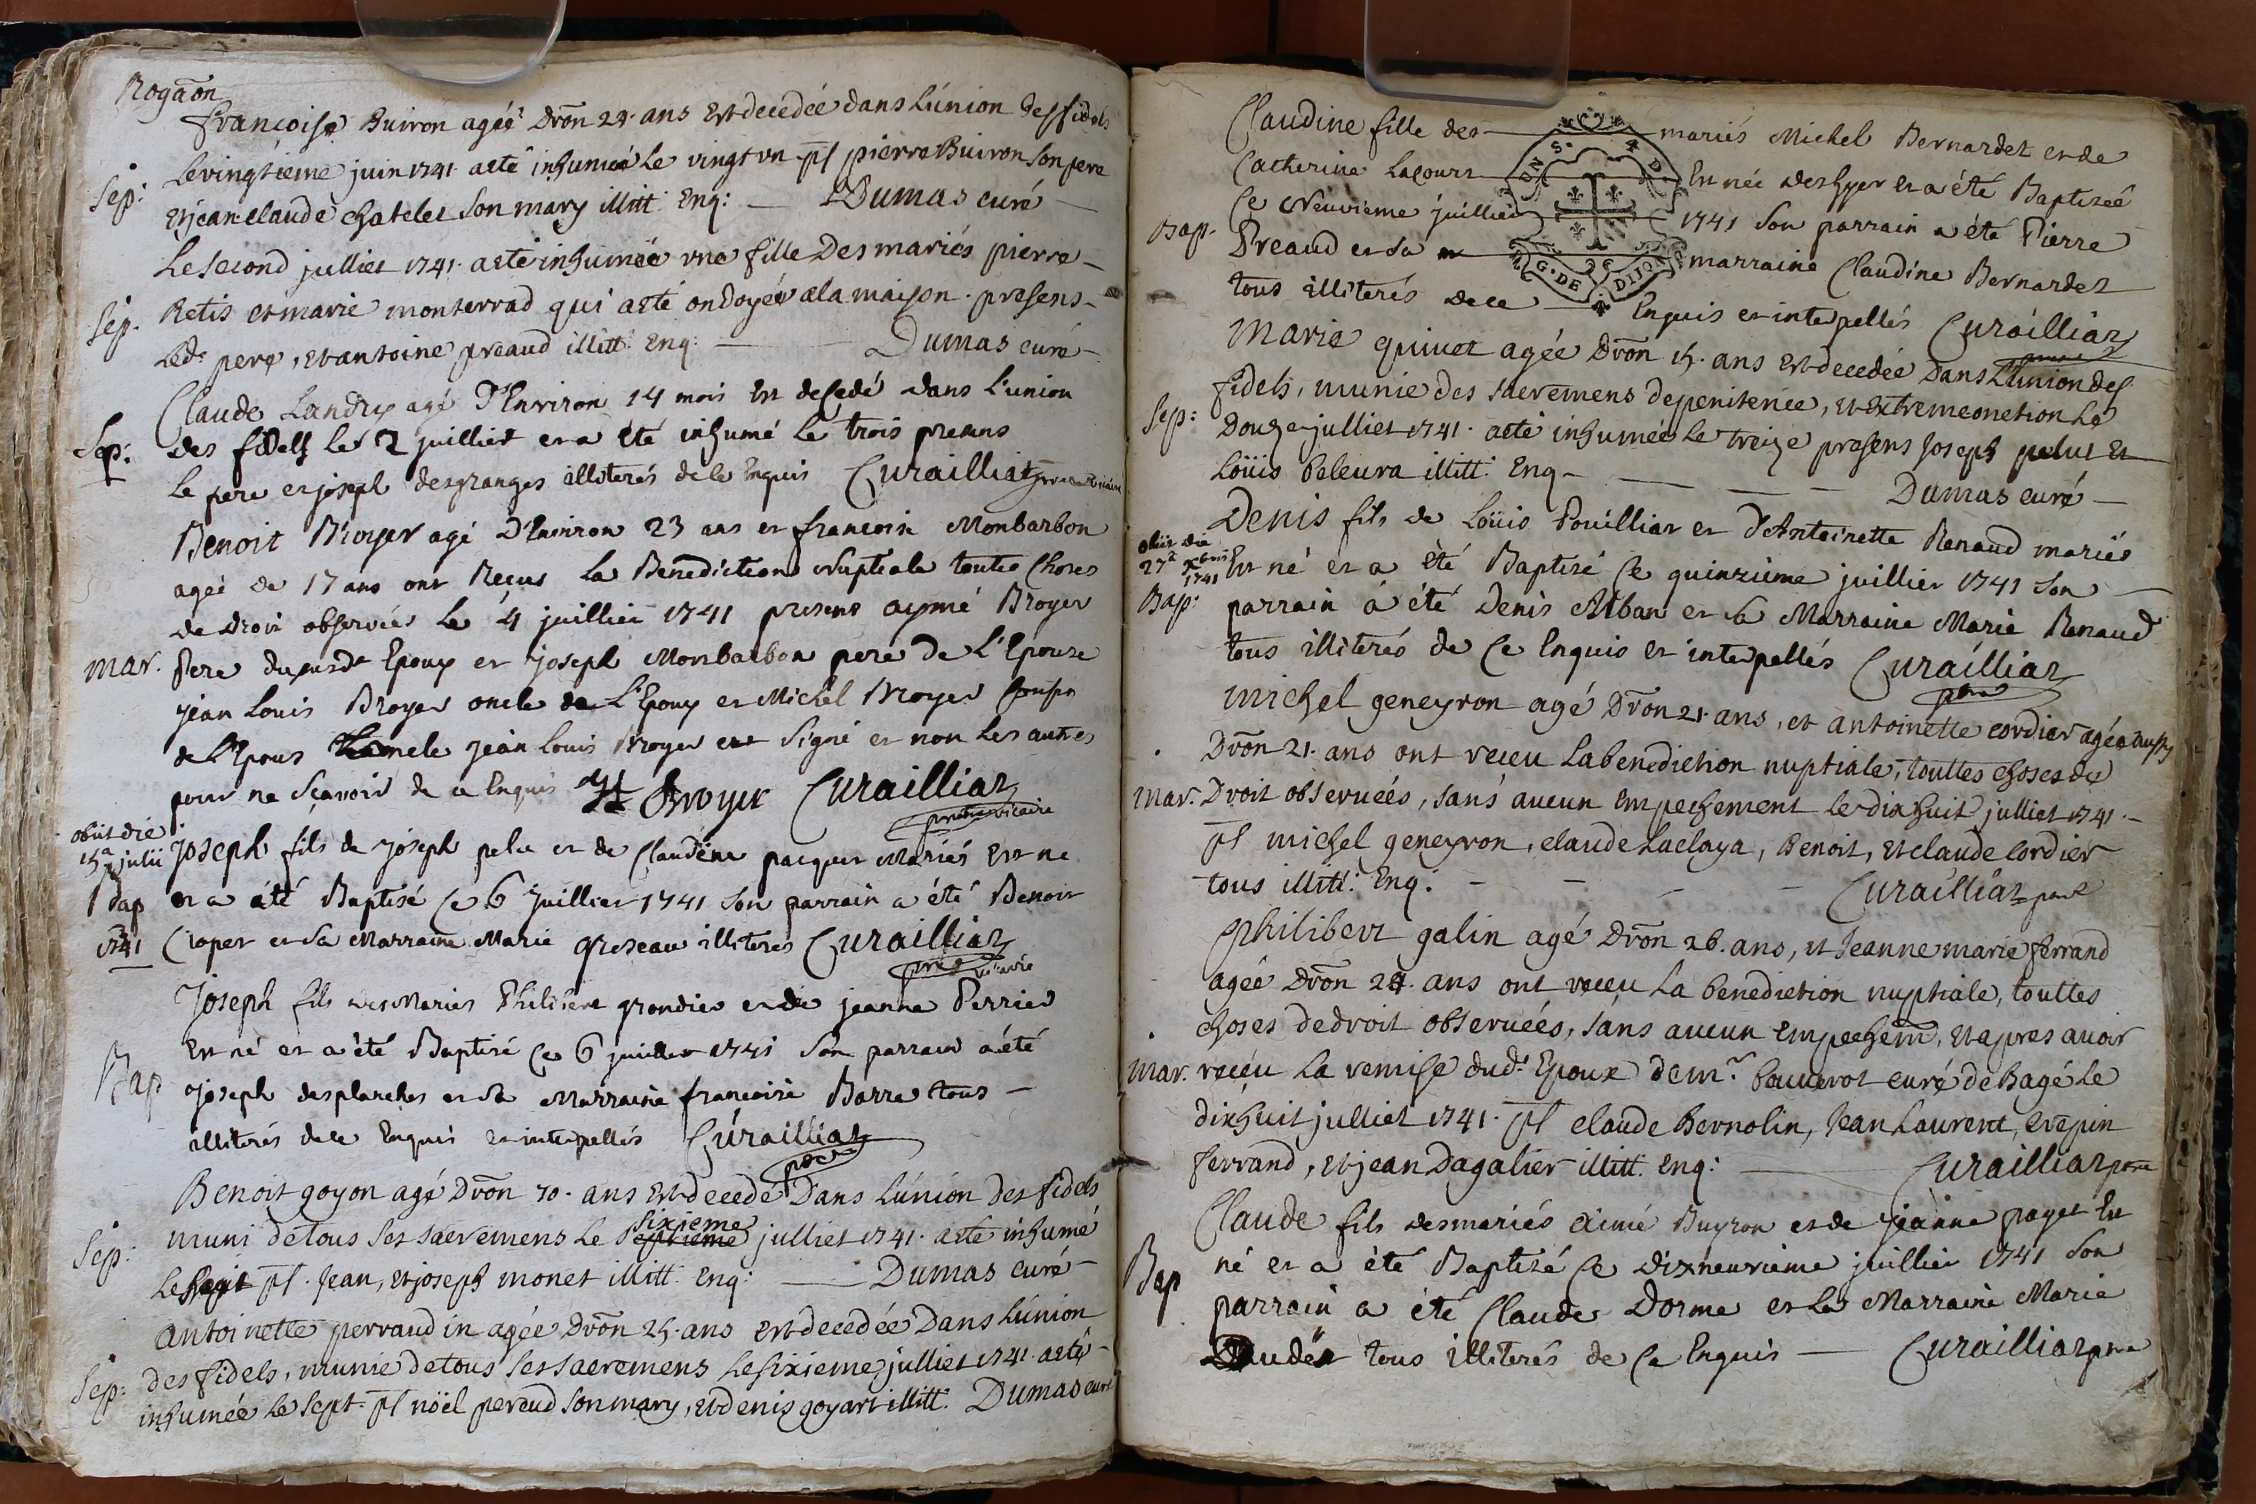 Rogaõn
françoise Buiron agéé Dr̃on 24. ans Est decedée dans L'union des fidels
Sep: Le vingtieme juin 1741. a eté inhumée Le vingt vn p̃t pierre Buiron Son pere
Et jean claude chatelet Son mary illitt. Enq: — Dumas curé —
Le Second julliet 1741. a eté inhumée vne fille Des mariés pierre —
Sep. Retis et marie monterrad qui a eté ondoyée a la maison. presens —
Led. pere, et antoine preaud illitt. Enq: — Dumas curé —
Claude Landry agé D'Environ 14 mois Est decedé dans L'union
Sep: des fidells le 2 juilliet et a été inhumé Le trois presens
Le pere et joseph desgranges illiterés de ce Enquis Curailliat pretre vicaire
Benoit Broyer agé D'Environ 23 ans et francoise Monbarbon
ageé de 17 ans ont Reçus La Benediction Nuptiale toutes Choses
de Droit observées Le 4 juilliet 1741 presens aymé Broyer
mar. Pere du susd. Epoux et Joseph Monbarbon pere De L'Epouse
jean Louis Broyer oncle de L'Epoux et Michel Broyer Cousin
de L'Epoux L'oncle jean Louis Broyer est Signé et non Les autres
pour ne Sçavoir de ce Enquis Broyer Curailliat
pretre vicaire
obiit die
15a julii Joseph fils de Joseph pelu et de Claudine paequet Mariés Est né
Bap et a été Baptisé Ce 6 Juilliet 1741 Son parrain a été Benoit
1741 Croyer et Sa Marraine Marie Greseau illiteres Curailliat
ptre vicaire
Joseph fils des Mariés Philibert grondier et de jeanne Perrier
Est né et a été Baptisé Ce 6 juilliet 1741 Son parrain a été
Bap Joseph desplanches et Sa Marraine francoise Barre tous —
illiterés de ce Enquis et interpellés Curailliat
ptre
Benoit goyon agé Dr̃on 70. ans Est decedé Dans L'union Des fidels
sixieme
Sep: muni de tous Ses sacremens Le septieme julliet 1741. a eté inhumé
Le Sept p̃t. Jean, et joseph monet illitt. Enq: — Dumas curé —
antoinette perraudin agée Dr̃on 25. ans Est decedée Dans L'union
Sep: des fidels, munie de tous Ses sacremens Le sixieme julliet 1741. a eté —
inhumée Le Sept. p̃t nöel perend Son mary, et denis goyart illitt. Dumas curé
Claudine fille des mariés Michel Bernardet et de
Catherine Lacour Est née des hyer et a été Baptiseé
Bap. Ce Neuvieme juilliet 1741 Son parrain a été Pierre
Preaud et Sa marraine Claudine Bernardet
tous illiterés de ce Enquis et interpellés Curailliat
DNS. AD.
G. DE DIJON
Marie quinet agée Dr̃on 15. ans Est decedée Dans L'union des
fidels, munie des sacremens de penitence, et Extremeonction Le
Sep: Douze julliet 1741. a eté inhumée Le treize presens Joseph pelut Et
Loüis beleura illitt. Enq — Dumas curé —
Denis fils de Loüis Pouilliat et D'Antoinette Renaud mariés
obiit die
27a xbris Est né et a été Baptisé Ce quinzieme juilliet 1741 Son
1741
Bap: parrain a été Denis Alban et Sa Marraine Marie Renaud
tous illiterés de Ce Enquis et interpellés Curailliat
ptre
Michel geneyron agé Dr̃on 21. ans, et antoinette cordier agée aussy
Dr̃on 21. ans ont receu La benediction nuptiale, touttes choses de
mar. Droit observeés, Sans aucun Empechement Le dix huit julliet 1741. —
p̃t michel geneyron, claude Laclaya, Benoit, et claude Cordier
tous illitt. Enq: — Curailliat ptre
Philibert galin agé Dr̃on 26. ans, et Jeanne marie ferrand
agée Dr̃on 24. ans ont receu La benediction nuptiale, touttes
choses de droit observeés, Sans aucun Empechem̃, et apres avoir
mar. receu La remise dud. Epoux de mr. bouverot curé de Bagé Le
dix huit julliet 1741. p̃t claude Bernolin, Jean Laurent, crepin
ferrand, et jean Dagalier illitt. Enq: — Curailliat ptre
Claude fils des mariés aimé Buyron et de jeanne paget Est
Bap né et a été Baptisé Ce dixneuvieme juilliet 1741 Son
parrain a été Claude Dorme et Sa Marraine Marie
tous illiterés de Ce Enquis — Curailliat ptre